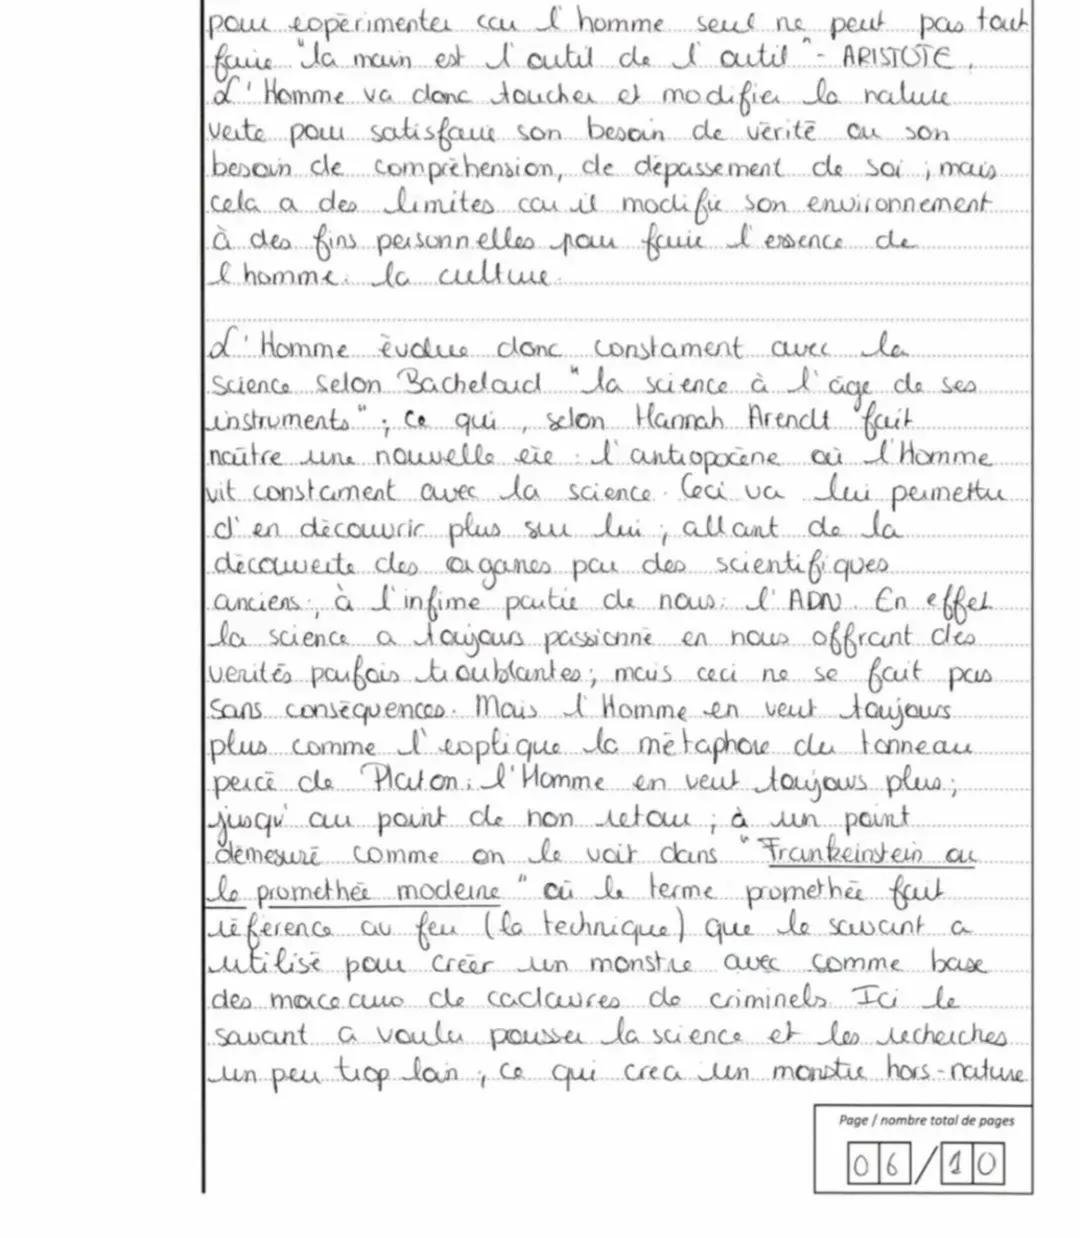 pour expérimenter car l'homme seul ne peut pas tout
faire "la main est l'outil de l'outil" - ARISTOTE.
L'Homme va donc toucher et modifier la nature
verte pour satisfaire son besoin de vérité ou son
besoin de compréhension, de dépassement de soi ; mais
cela a des limites car il modifie son environnement
à des fins personnelles pour faire l'essence de
l'homme : la culture.
L'Homme évolue donc constament avec la
science selon Bachelard "la science à l'âge de ses
instruments" ; ce qui, selon Hannah Arendt fait
naître une nouvelle ère : l'antropocène où l'Homme
vit constament avec la science. Ceci va lui permettre
d'en découvrir plus sur lui ; allant de la
découverte des organes par des scientifiques
anciens ; à l'infime partie de nous : l'ADN. En effet
la science a toujours passionné en nous offrant des
verités parfois troublantes ; mais ceci ne se fait pas
sans conséquences. Mais l'Homme en veut toujours
plus comme l'explique la métaphore du tonneau
percé de Platon : l'Homme en veut toujours plus ;
jusqu'au point de non retour ; à un point
démesuré comme on le voit dans "Frankeinstein ou
le promethée moderne" où le terme promethée fait
référence au feu (la technique) que le savant a
utilisé pour créér un monstre avec comme base
des morceaux de cadavres de criminels. Ici le
savant a voulu pousser la science et les recherches
un peu trop loin, ce qui crea un monstre hors-nature
Page / nombre total de pages
06/10